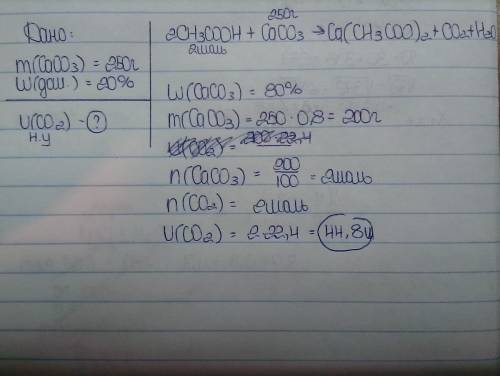 Дано:
m(CaCO₃) = 250г
W(дом.) = 20%
V(CO₂) - ?
н.у
250г
2CH₃COOH + CaCO₃ → Ca(CH₃COO)₂ + CO₂ + H₂O
2моль
W(CaCO₃) = 80%
m(CaCO₃) = 250 · 0,8 = 200г
n(CaCO₃) = 200/100 = 2моль
n(CO₂) = 2моль
V(CO₂) = 2·22,4 = 44,8л